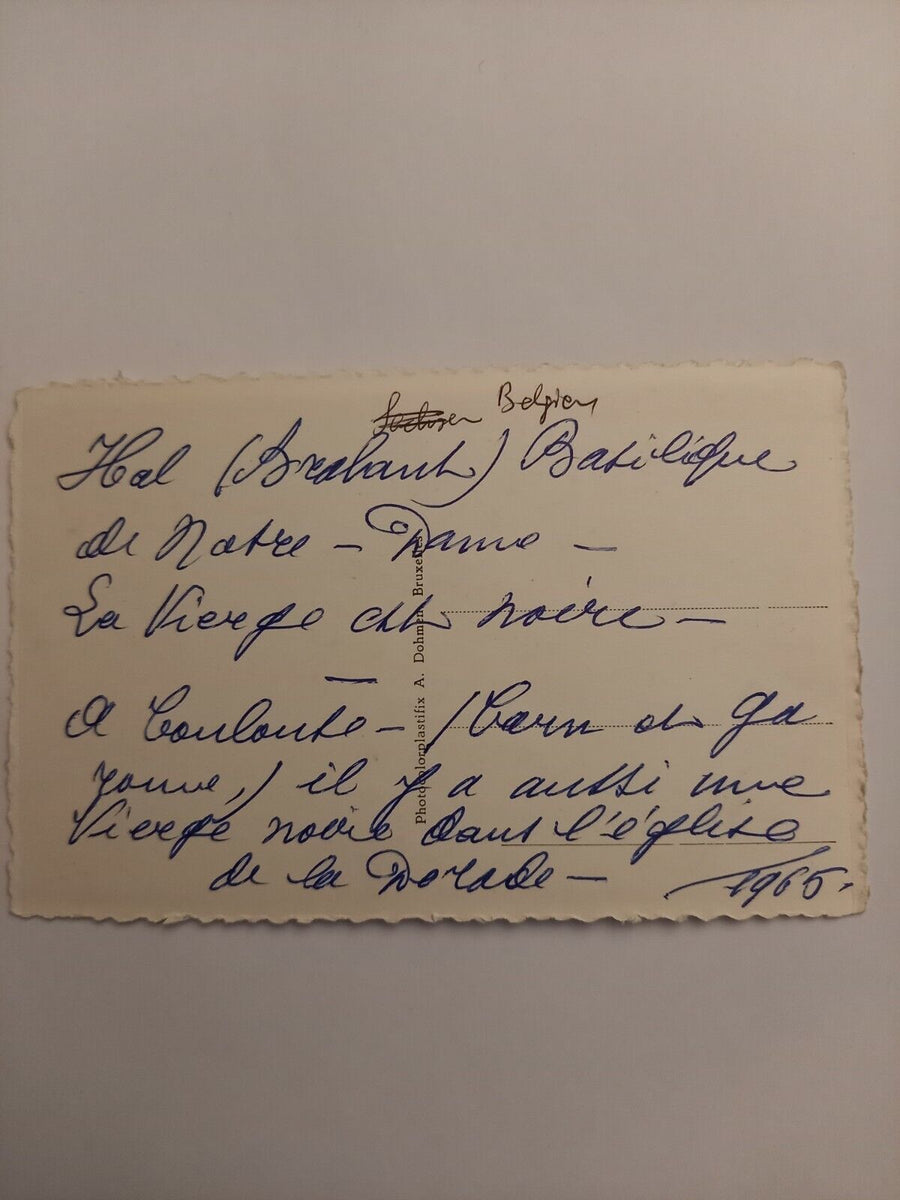 Belgien
Hal (Brabant) Basilique
de Notre - Dame -
La Vierge est noire -
—
A Toulouse - (Tarn et Ga
ronne,) il y a aussi une
Vierge noire dans l'église
de la Dorade - 1965.
Photocolorplastifix A. Dohmen Bruxelles